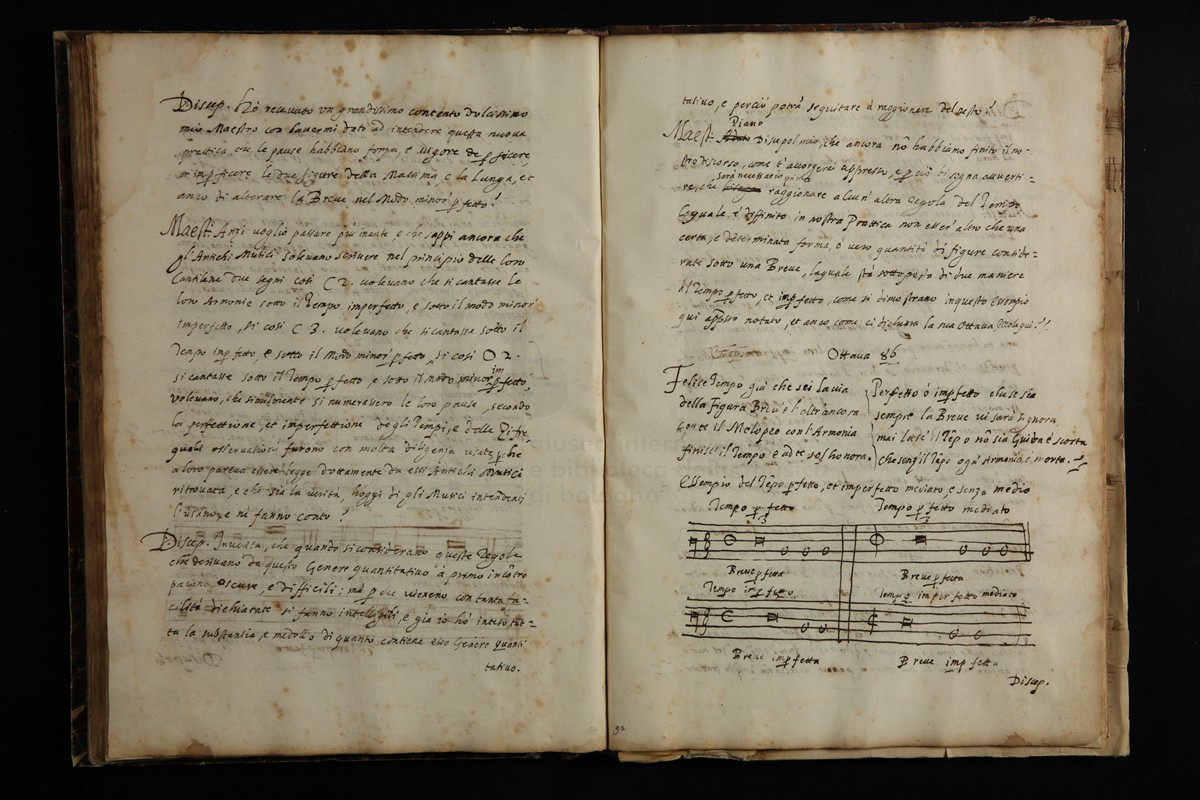 Discep. Hò recevuto un grandissimo contento dolcissimo
mio Maestro con havermi dato ad intendere questa nuova
prattica, che le pause habbiano forza, e vigore de pficere,
et impficere le due figure della Massima, e la Lunga, et
anco di alterare la Breve nel Modo minor pfetto.
Maest. Anzi voglio passare più inante, e che sappi ancora che
gl'Antichi Musici solevano scrivere nel principio delle loro
Cantilene due segni cosi C 2. volevano che si cantasse le
loro Armonie sotto il Tempo imperfetto, e sotto il modo minor
imperfetto, si cosi C 3. volevano che si cantasse sotto il
Tempo impfetto, e sotto il Modo minor pfetto, si cosi O 2.
si cantasse sotto il Tempo pfetto, e sotto il modo minor impfetto,
volevano, che similmente si numerassero le loro pause, secondo
la perfettione, et imperfettione degli Tempi, e delle Zifre,
quali osservationi furono con molta diligenza usate, pche
a loro pareva essere legge dottamente da essi Antichi Musici
ritrovata, e che sia la verità, hoggi di gli Musici intendenti
l'usano, e ne fanno conto.
Discep. In verità, che quando si considerano queste Regole
che derivano da questo Genere quantitativo à primo incōtro
paiono oscure, e difficili; mà p che vieneno con tanta fa=
cilità dichiarate si fanno intelligibili, e già io hò inteso tut=
ta la substantia, e medollo di quanto contiene esso Genere quanti
tativo.
tativo, e perciò potrà seguitare à raggionare del resto.
Piano
Maest. Discepol mio, che ancora nō habbiamo finito il no=
stro discorso, come t'accorgerai appresso, e pciò bisogna avverti=
sarà necessario prima
re, che raggionare alcun'altra regola del Tempo
loquale è diffinito in nostra Prattica non esser'altro che una
certa, e determinata forma, ò vero quantità di figure conside=
rate sotto una Breve, laquale stà sottoposta di due maniere
il Tempo pfetto, et impfetto, come si dimostrano in questo essempio
qui appsso notato, et anco come ci dichiara la mia Ottava eccola qui.
Ottava 86
Felice Tempo già che sei la via
della Figura Breve l'oltr'ancora
Con te il Melopeo con l'Armonia
finisci! Tempo è ad te sol honora.
Perfetto ò impfetto che se sia
sempre la Breve vi sarà Signora
mai lasc' il Tēpo nō sia Guida e scorta
che senz'il Tēpo ogn'Armonia è morta.
Essempio del Tēpo pfetto, et imperfetto mediato, e senza medio
Tempo pfetto
Tempo pfetto mediato
Breve pfetta
Breve pfetta
Tempo impfetto
Tempo imperfetto mediato
Breve impfetta
Breve impfetta
Discep.
52
museo inter
e biblioteca
di bologna